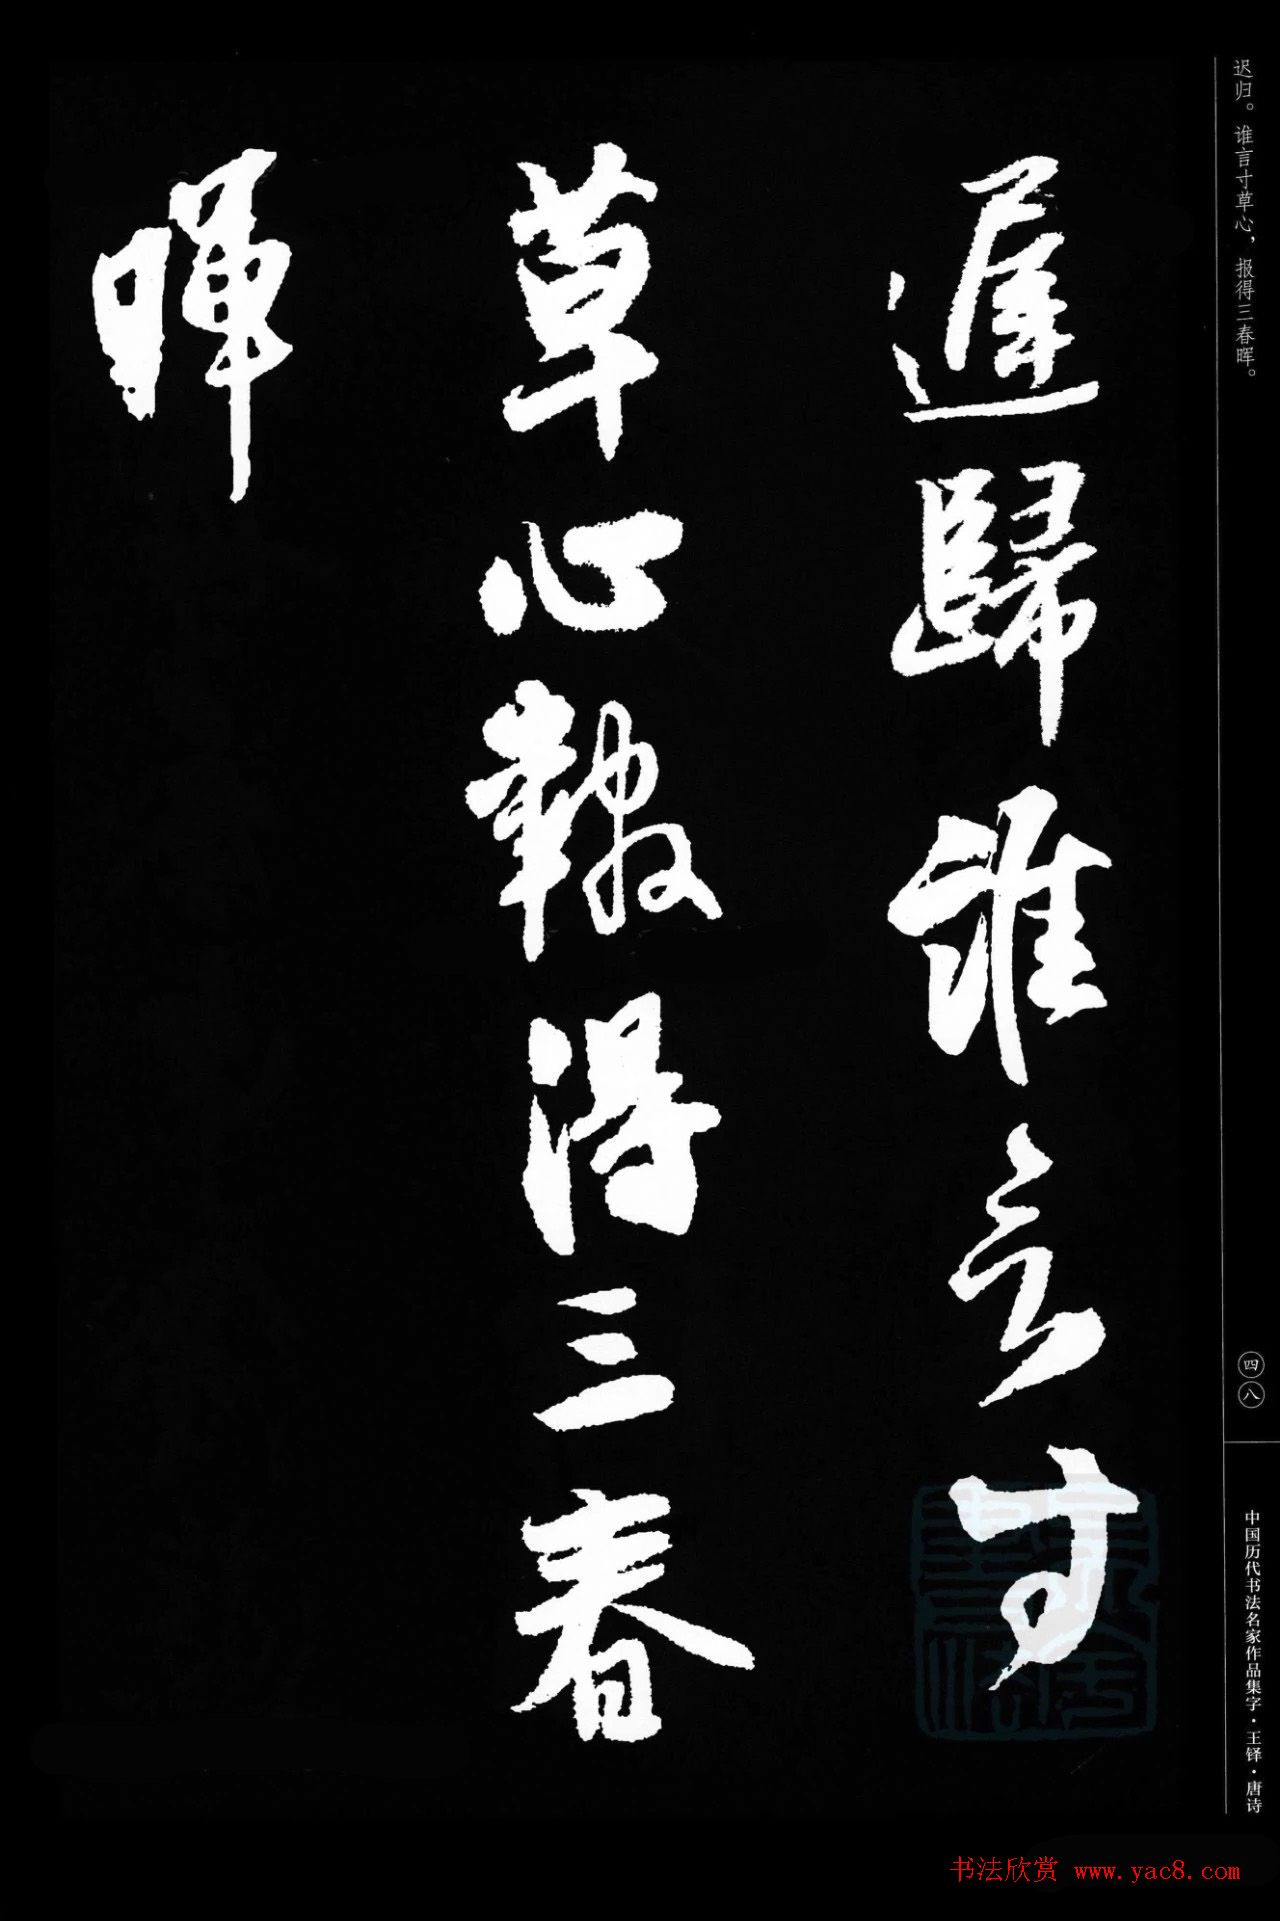 迟归。谁言寸草心，报得三春晖。
遲歸誰言寸
草心報得三春
暉
四八
中国历代书法名家作品集字·王铎·唐诗
书法欣赏 www.yac8.com